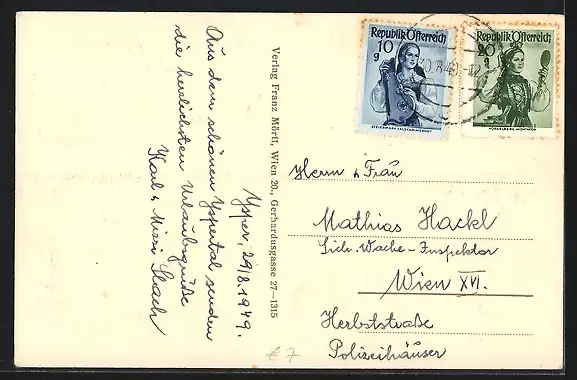 Ysper, 29/8.1949.
Aus dem schönen Yspertal senden
die herzlichsten Urlaubsgrüße
Karl & Mizzi
Verlag Franz Mörtl, Wien 20., Gerhardusgasse 27—1315
Republik Österreich
10
g
STEIERMARK SALZKAMMERGUT
Republik Österreich
20
g
VORARLBERG MONTAFON
Herrn & Frau
Mathias Hackl
Sich. Wache-Inspektor
Wien XVI.
Herbststraße
Polizeihäuser
€ 7